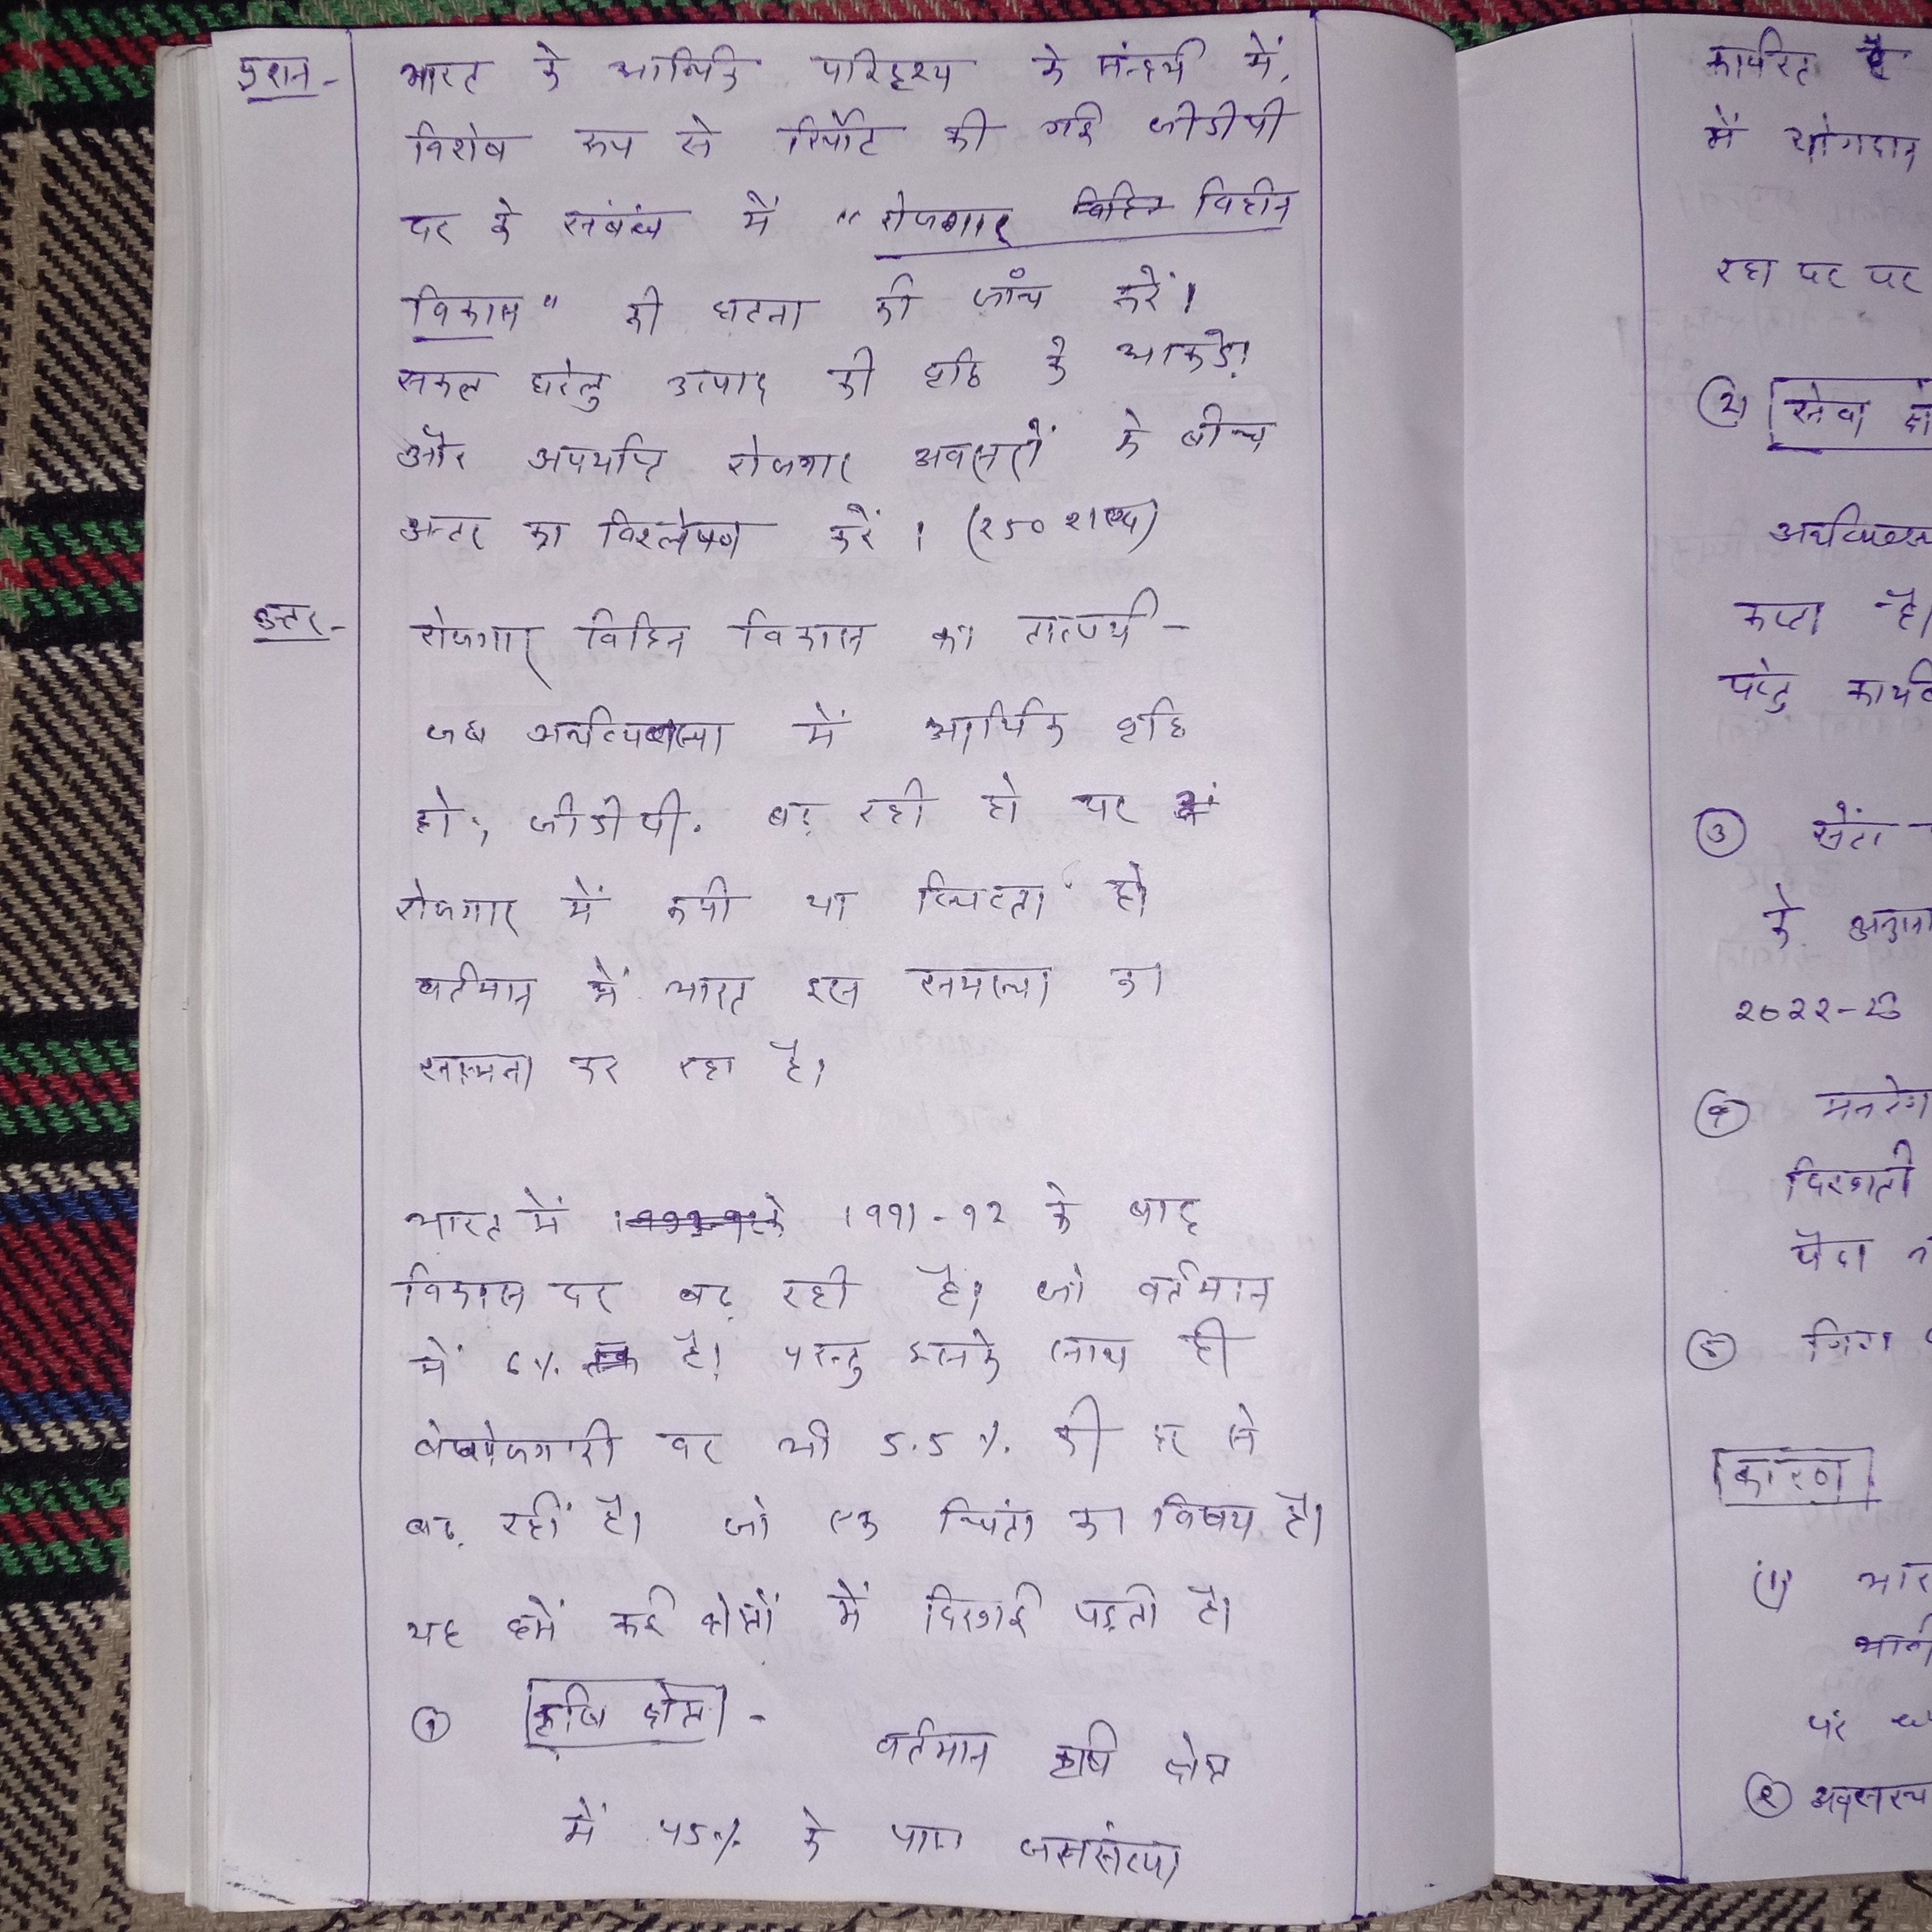 प्रश्न- भारत के आर्थिक परिदृश्य के संन्दर्भ में,
विशेष रूप से रिर्पोट की गई जीडीपी
दर के संबंध में "रोजगार विहिन विहीन
विकास" की घटना की जाँच करें।
सकल घरेलु उत्पाद की वृद्धि के आकडे़ा
और अपर्याप्त रोजगार अवसरों के बीच
अन्तर का विश्लेषण करें। (२५० शब्द)
उत्तर- रोजगार विहिन विकास का तात्पर्य -
जब अर्थव्यवस्था में आर्थिक वृद्धि
हो, जीडीपी. बढ़ रही हो पर
रोजगार में कमी या स्थिरता हो
वर्तमान में भारत इस समस्या का
सामना कर रहा है।
भारत में 1991-92 के बाद
विकास दर बढ़ रही है। जो वर्तमान
में 6% है। परन्तु इसके साथ ही
बेरोजगारी दर भी 5.5% की दर से
बढ़ रहीं है। जो एक चिंता का विषय है।
यह हमें कई क्षेत्रों में दिखाई पड़ती है।
① कृषि क्षेत्र - वर्तमान कृषि क्षेत्र
में 45% के पास जनसंख्या
कार्यरत है
में योगदान
रहा दर पर
② सेवा क्षे
अर्थव्यवस
करता है।
परंतु कार्य
③
के अनुसा
२०२२-२३
④ मनरेगा
दिखाती
पैदा
⑤ गिग
कारण
(1) भार
पर
② अवसरच